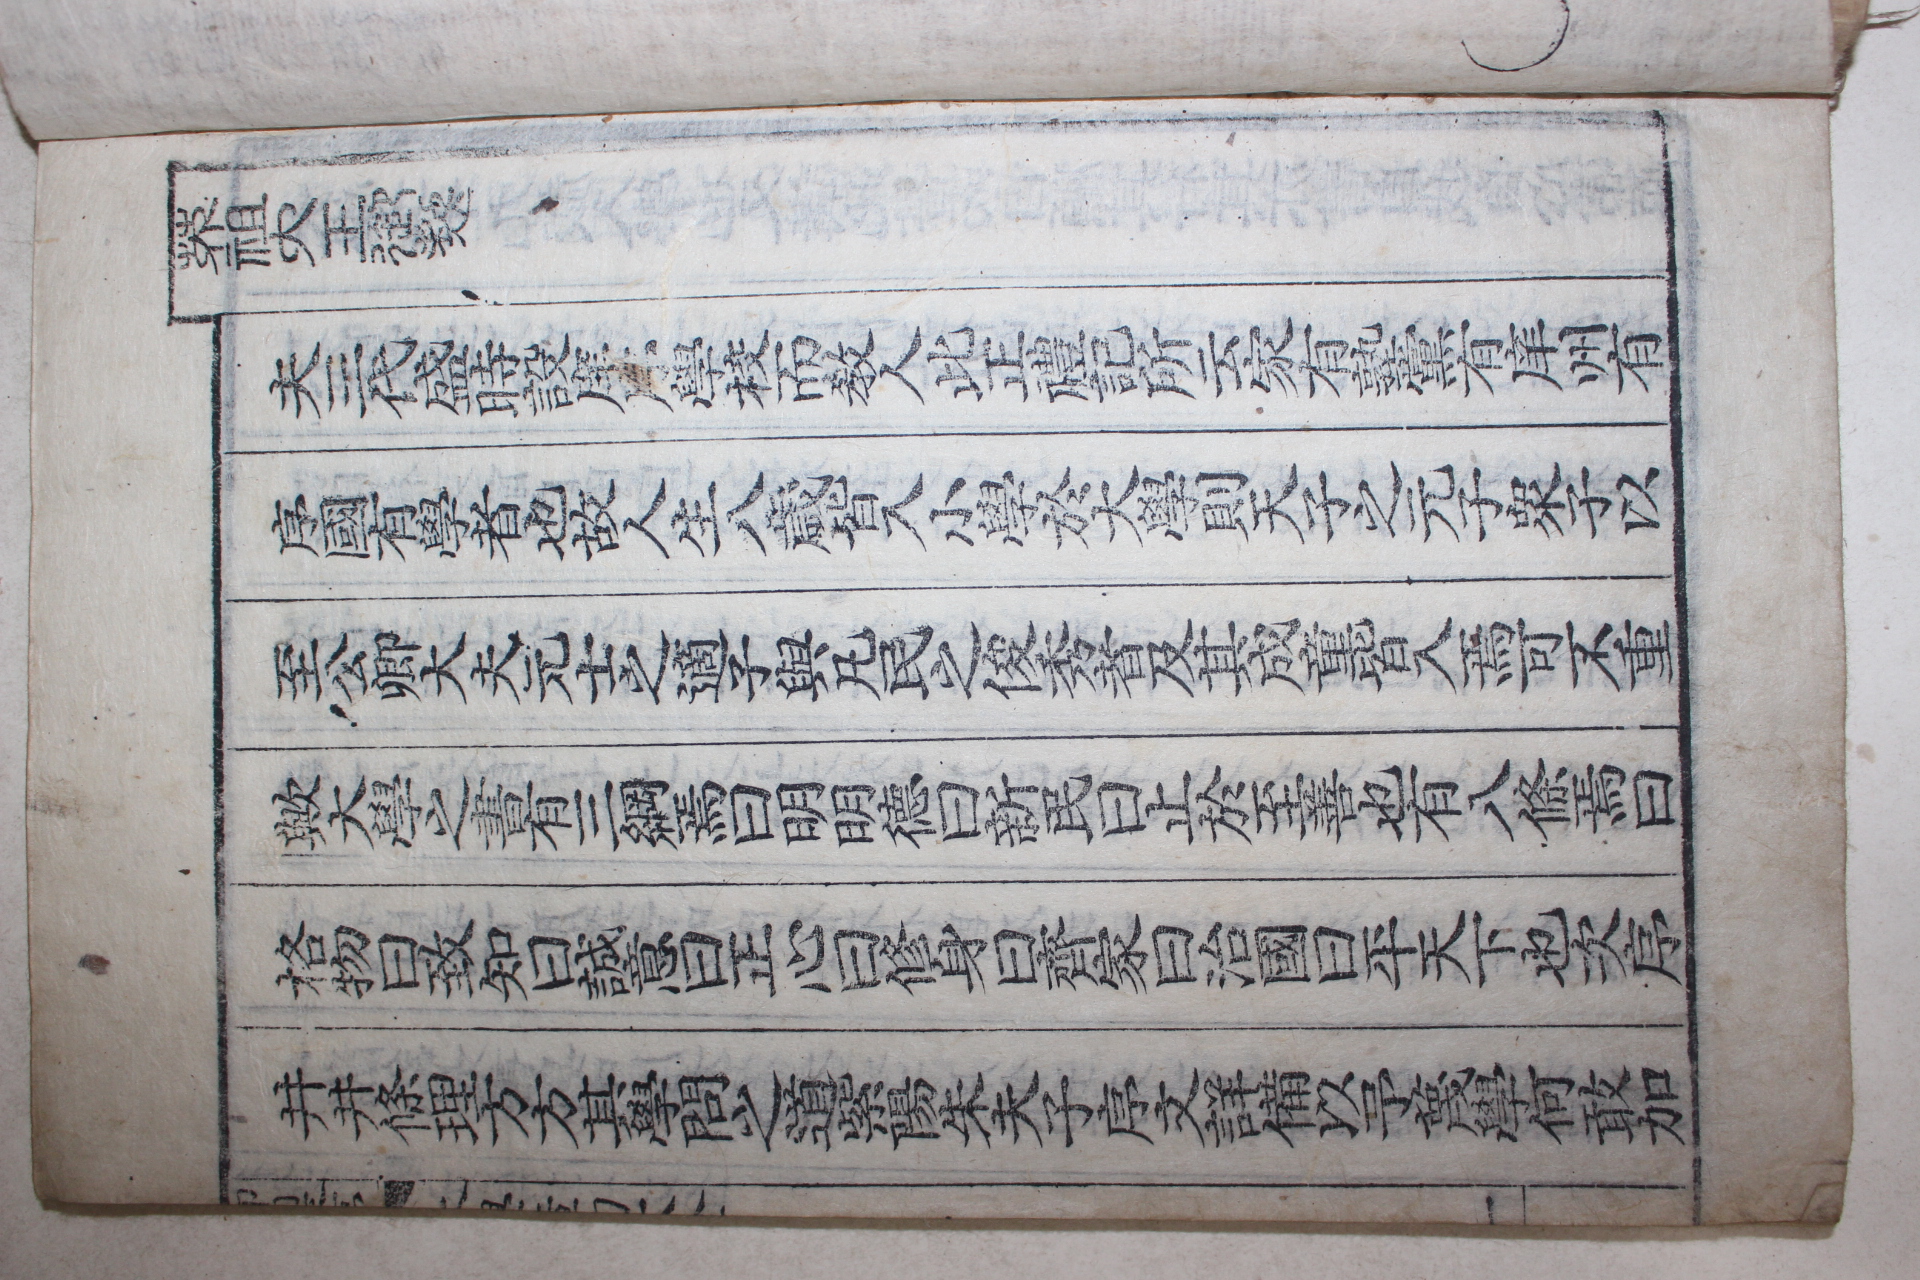 英祖大王御製
夫三代盛時設庠序學校而教人此正禮記所云家有塾黨有庠州有
序國有學者也故人生八歲皆入小學於大學則天子之元子衆子以
至公卿大夫元士之適子與凡民之俊秀者及其成童皆入焉可不重
歟大學之書有三綱焉曰明明德曰新民曰止於至善也有八條焉曰
格物曰致知曰誠意曰正心曰修身曰齊家曰治國曰平天下也次序
井井條理方方其學問之道紫陽朱夫子序文詳備以予蔑學何敢加